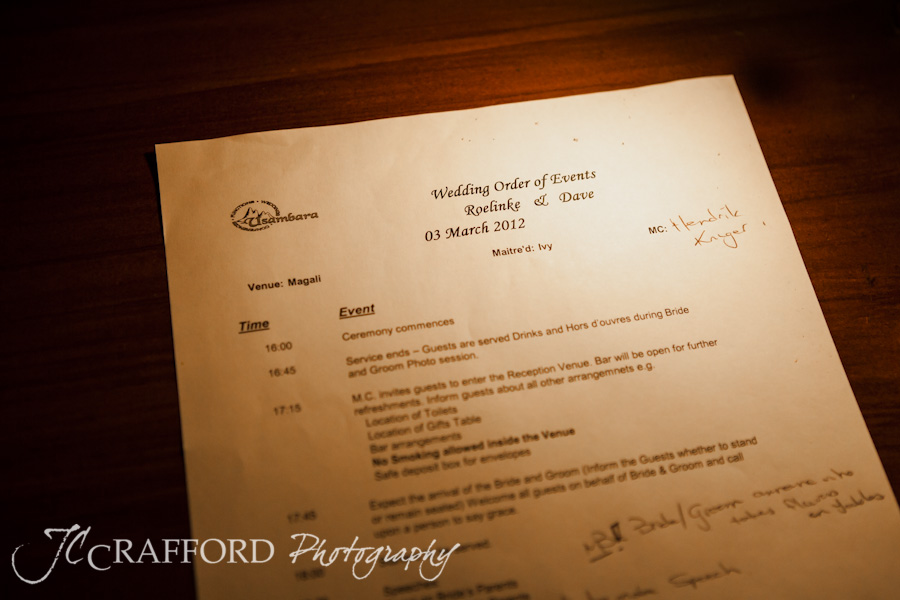 Wedding Order of Events
Roelinke & Dave
03 March 2012
Usambara
Maitre'd: Ivy
MC: Hendrik
Kruger.
Venue: Magali
Time Event
16:00 Ceremony commences
16:45 Service ends – Guests are served Drinks and Hors d'ouvres during Bride
and Groom Photo session.
17:15 M.C. invites guests to enter the Reception Venue. Bar will be open for further
refreshments. Inform guests about all other arrangemnets e.g.
Location of Toilets
Location of Gifts Table
Bar arrangements
No Smoking allowed inside the Venue
Safe deposit box for envelopes
17:45 Expect the arrival of the Bride and Groom (Inform the Guests whether to stand
or remain seated) Welcome all guests on behalf of Bride & Groom and call
upon a person to say grace.
Bride/Groom
on tables
18:00
Bride's Parents
Speech
JC CRAFFORD Photography